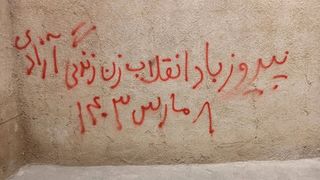 پیروز باد انقلاب زن زندگی آزادی
۸ مارس ۱۴۰۳